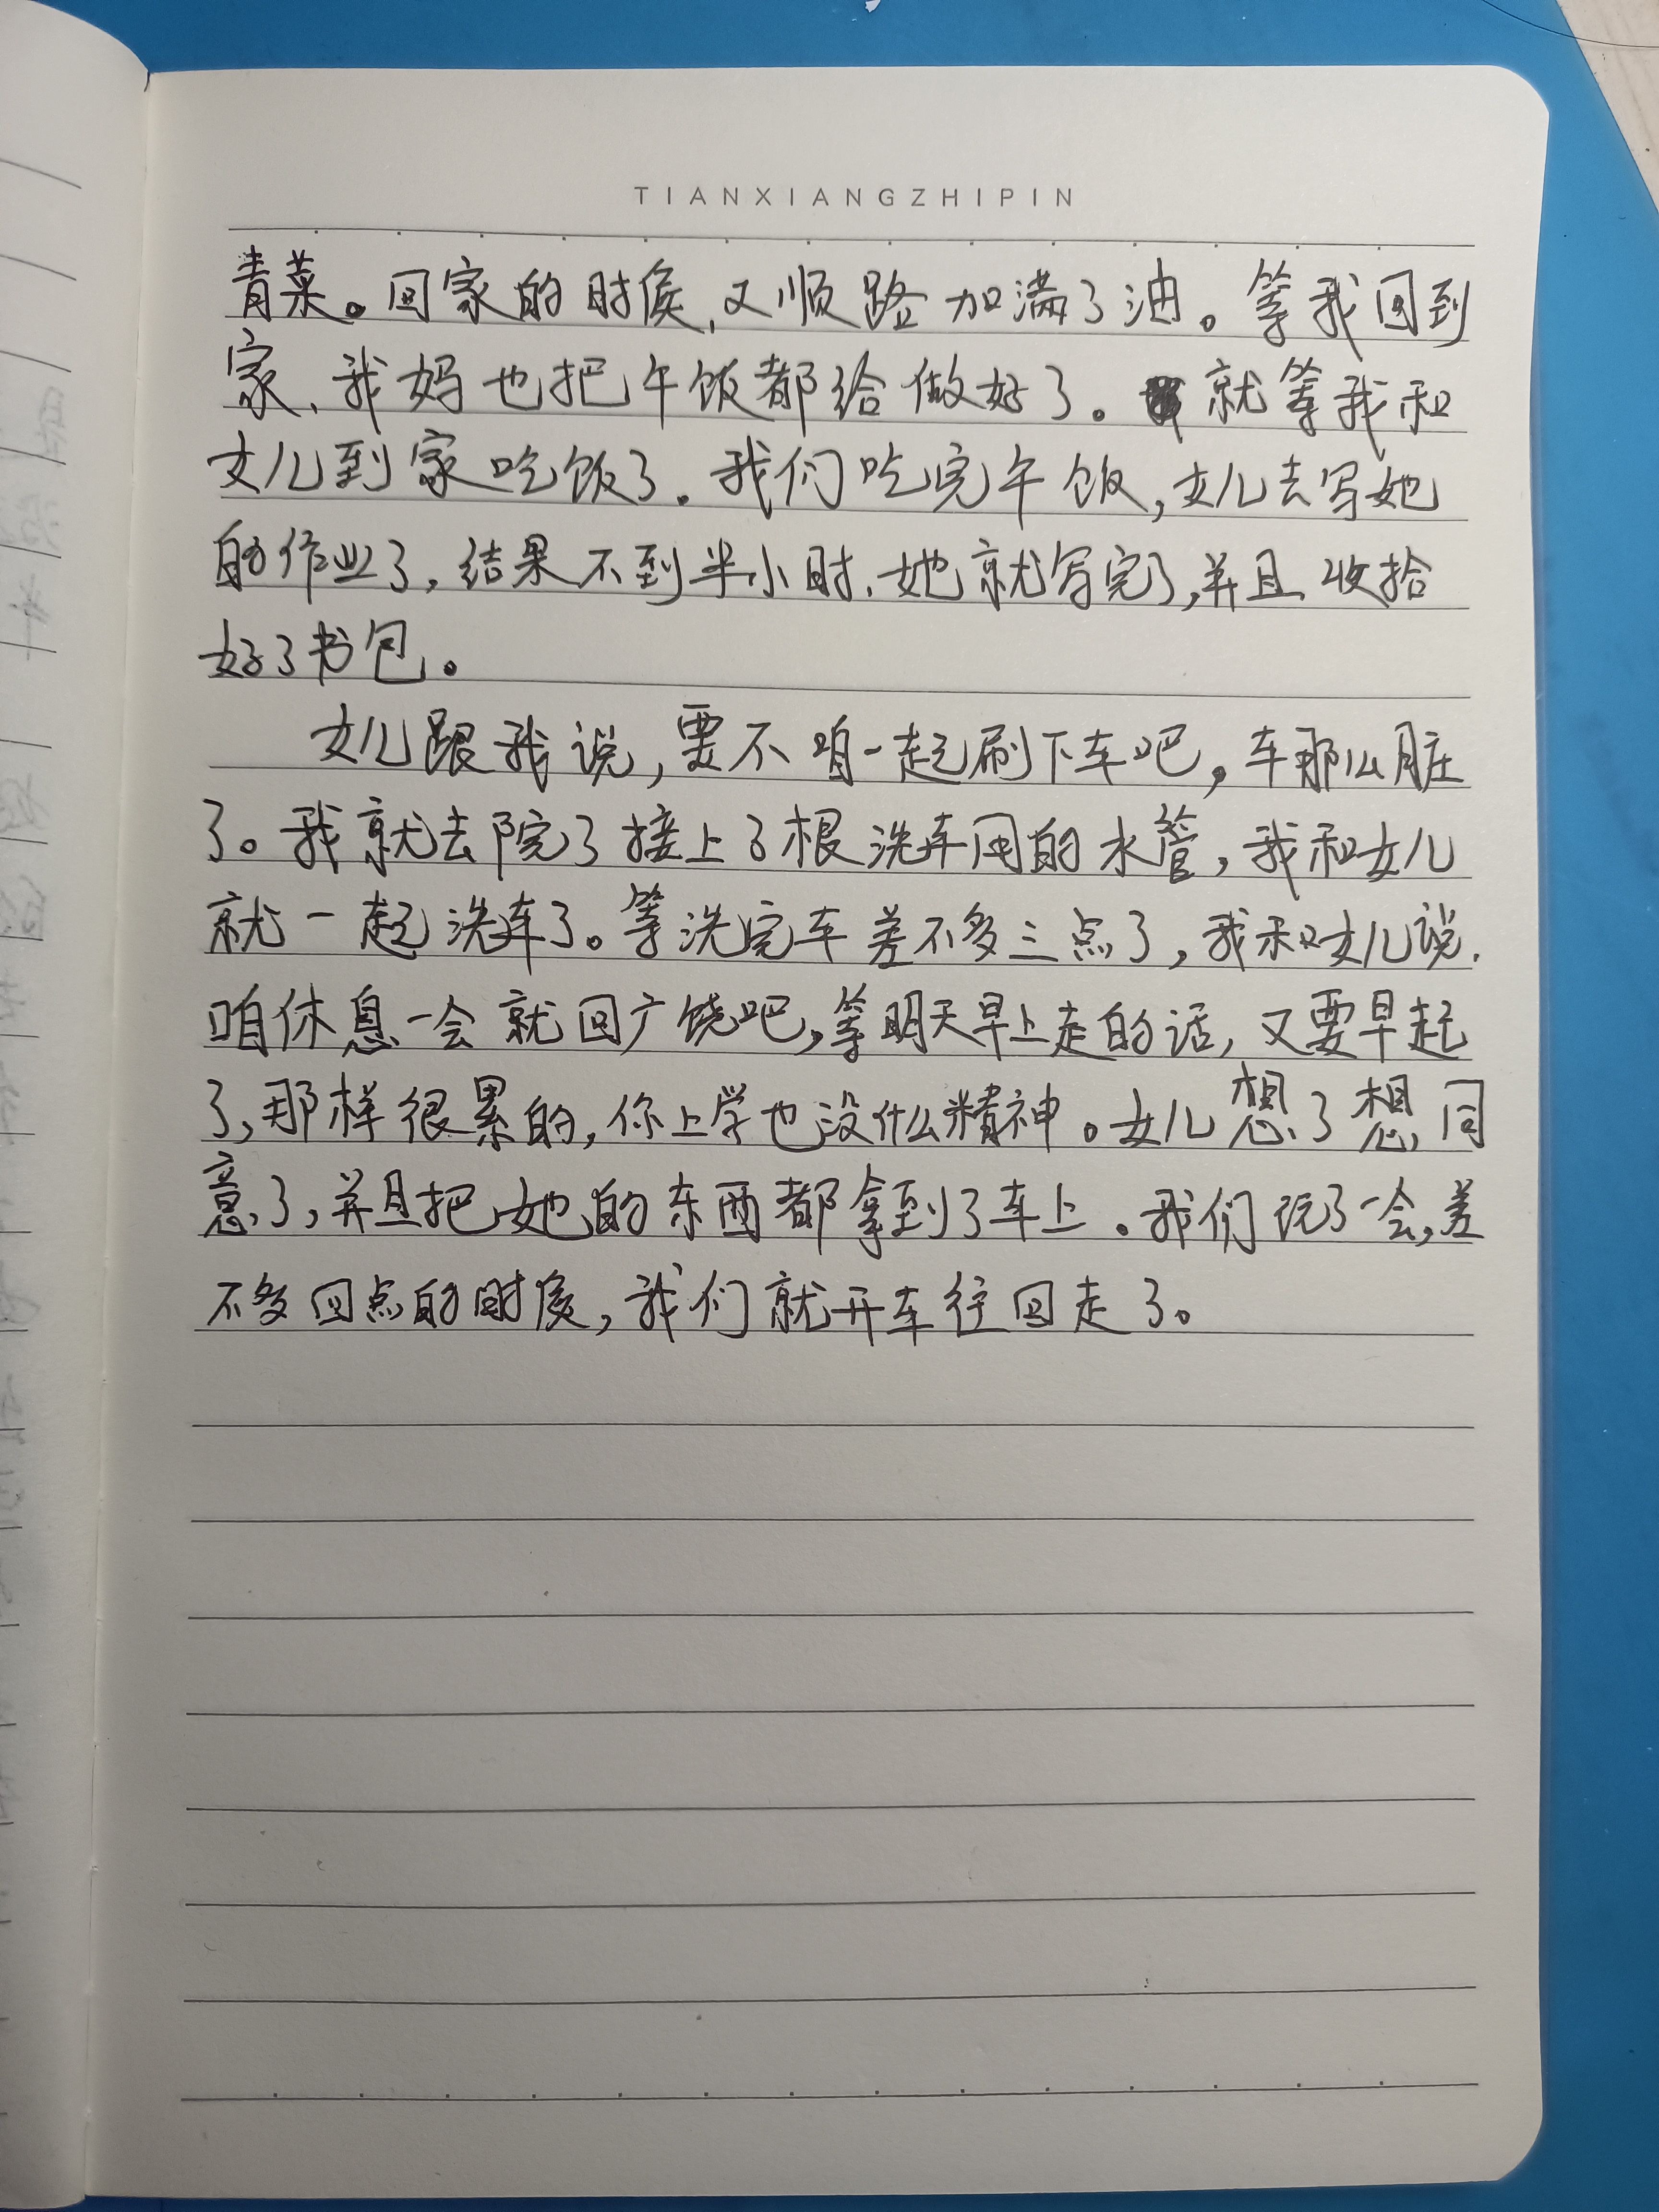 TIANXIANGZHIPIN
青菜。回家的时候,又顺路加满了油。等我回到
家、我妈也把午饭都给做好了。就等我和
女儿到家吃饭了。我们吃完午饭,女儿去写她
的作业了,结果不到半小时.她就写完了,并且收拾
好了书包。
女儿跟我说,要不咱一起刷下车吧,车那么脏
了。我就去院了接上了根洗车用的水管,我和女儿
就一起洗车了。等洗完车差不多三点了,我和女儿说.
咱休息一会就回广饶吧,等明天早上走的话,又要早起
了,那样很累的,你上学也没什么精神。女儿想了想,同
意了,并且把她的东西都拿到了车上。我们玩了一会,差
不多四点的时候,我们就开车往回走了。